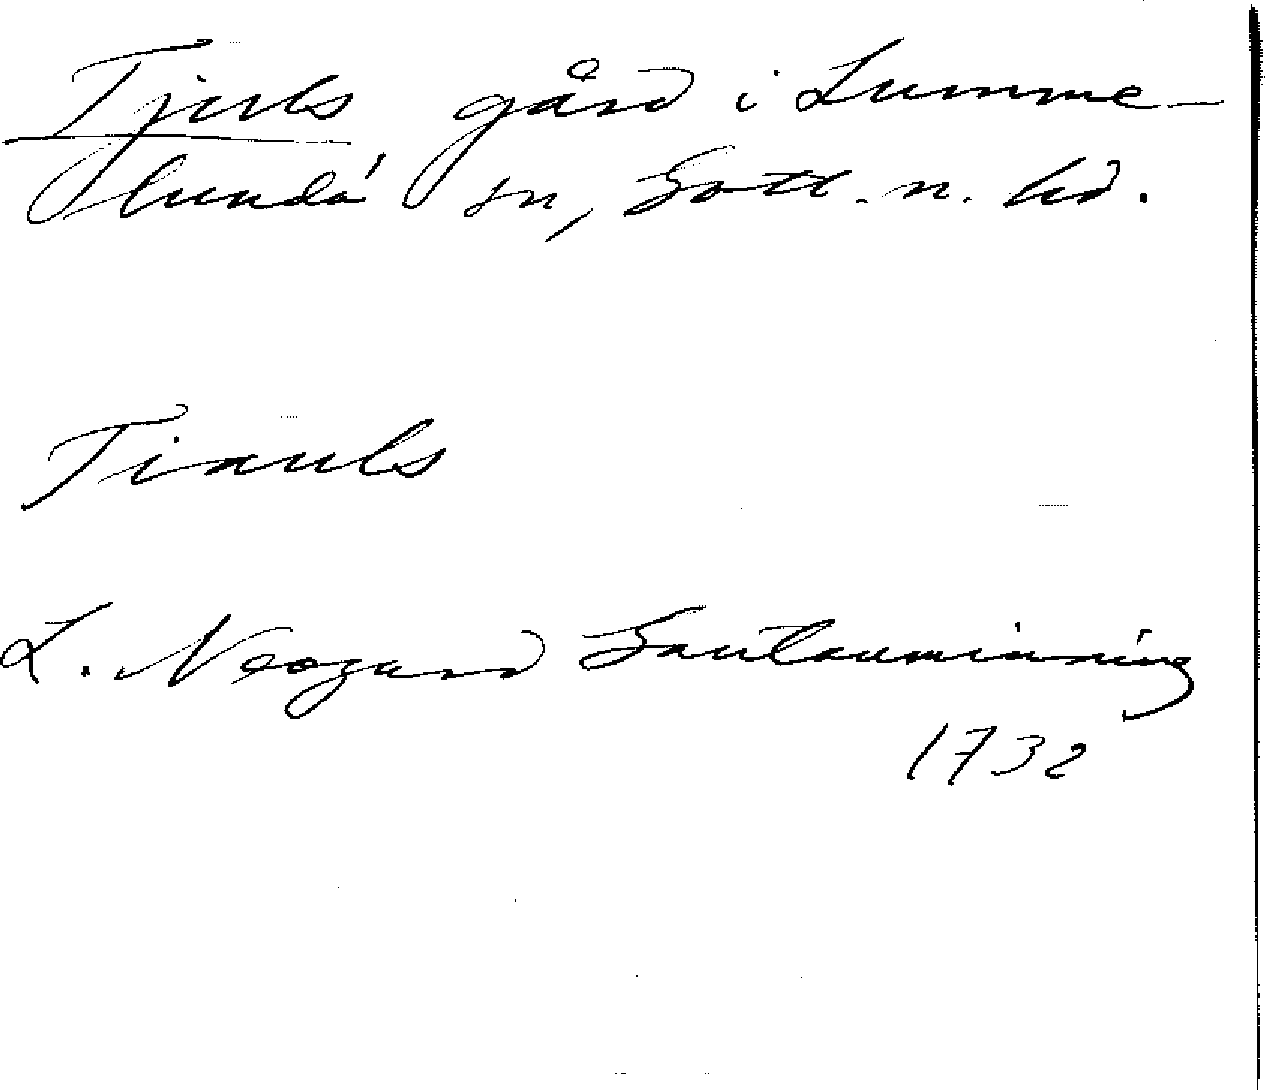 Tjuls gård i Lumme-
lunda sn, Gotl. n. hd.
Tiauls
L. Neogard Gautauminning
1732